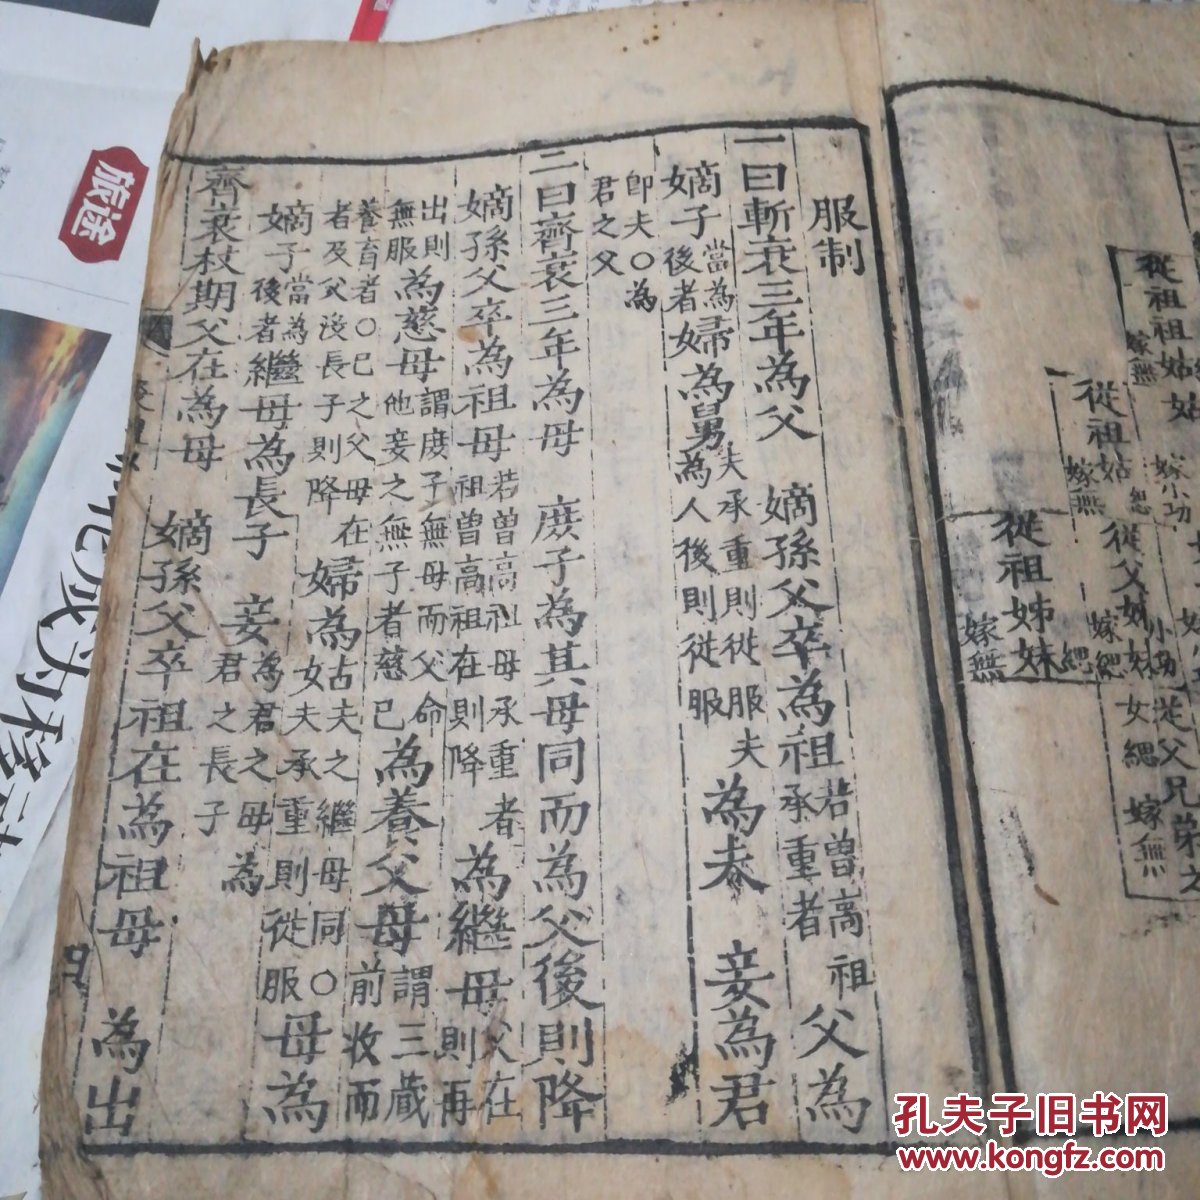 服制
一曰斬衰三年為父 嫡孫父卒為祖若曾高祖承重者 父為
嫡子當為後者婦為舅夫承重則從服夫為人後則從服 為夫 妾為君
即夫〇為君之父
二曰齊衰三年為母 庶子為其母同而為父後則降
嫡孫父卒為祖母若曾高祖母承重者祖曾高祖在則降 為繼母父在則再
出則無服為慈母謂庶子無母而父命他妾之無子者慈己 為養父母謂三歲前收而
養育者〇己之父母在者及父沒長子則降 婦為姑夫之繼母同〇女夫承重則從服 母為
嫡子當為後者繼母為長子 妾為君之母為君之長子
齊衰杖期父在為母 嫡孫父卒祖在為祖母 為出
從祖祖姑 嫁無
從祖姑 嫁無 緦
從祖姊妹 嫁無 緦
姑 嫁小功
從父姊妹 嫁緦 小功
從父兄弟之女緦 嫁無
旅途
孔夫子旧书网
www.kongfz.com